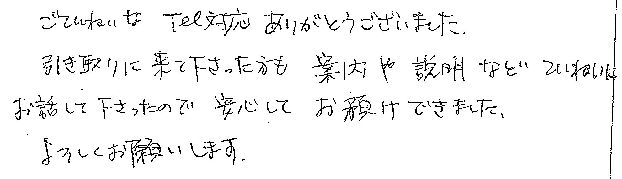 ごていねいな Tel対応 ありがとうございました。
引き取りに来て下さった方も 案内や説明など ていねいに
お話して下さったので 安心して お預けできました。
よろしくお願いします。